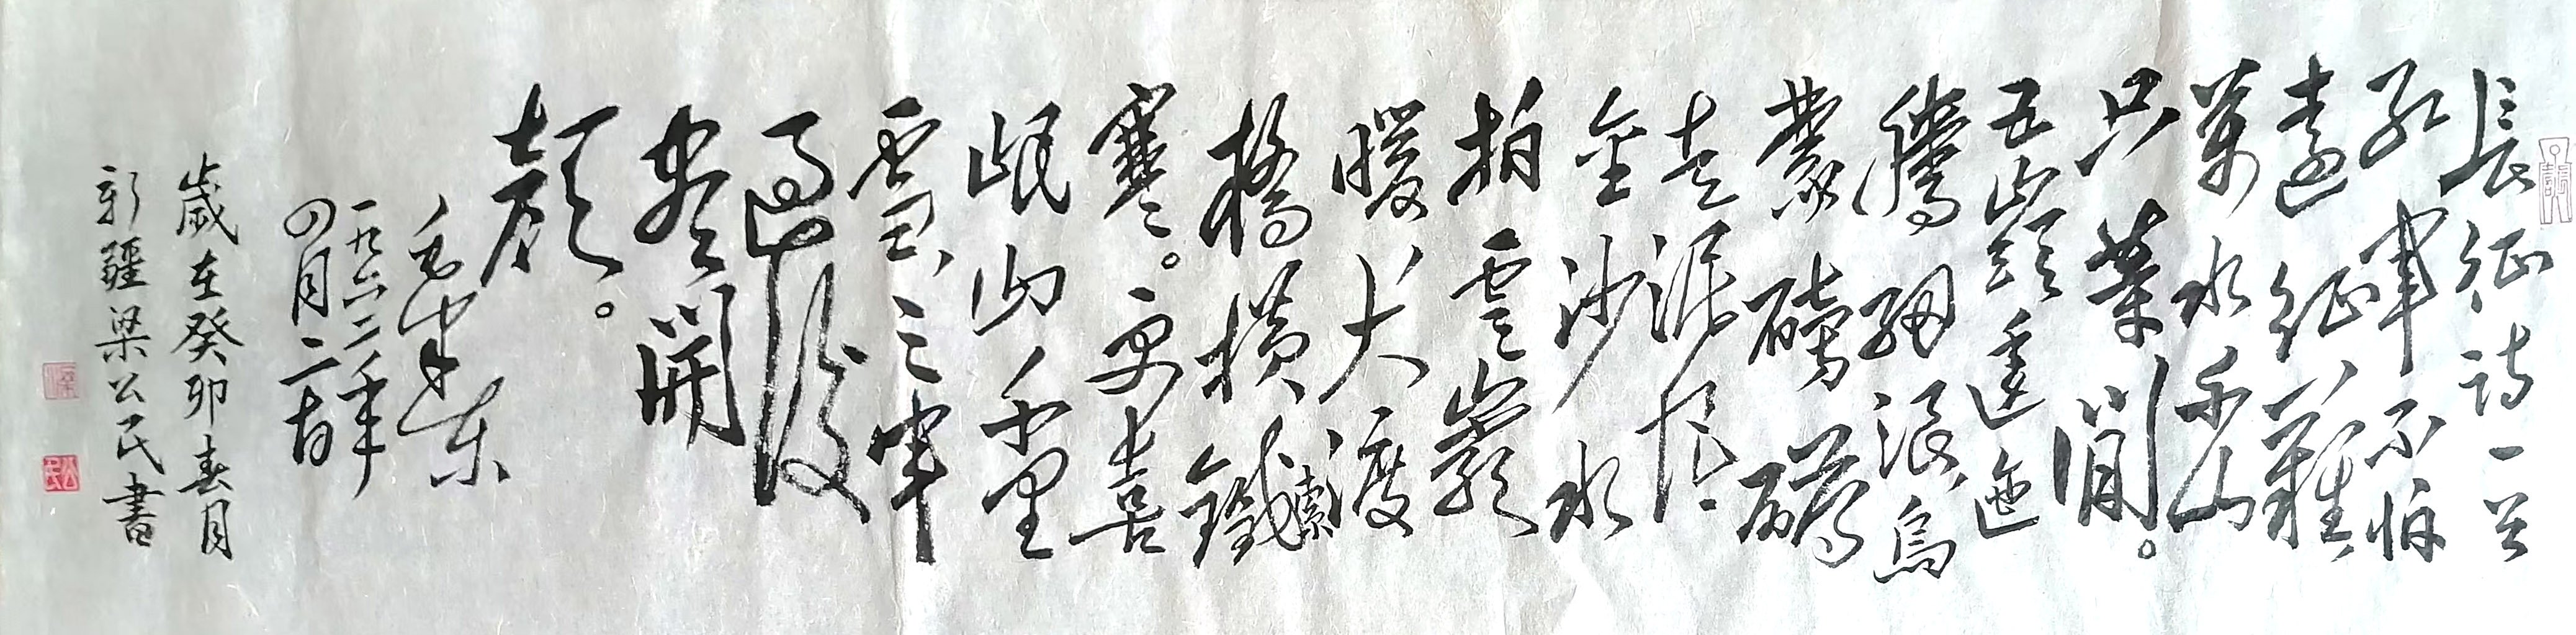 長征詩一首
紅軍不怕
遠征難
萬水千山
只等閒。
五嶺逶迤
騰細浪烏
蒙磅礴
走泥丸
金沙水
拍雲崖
暖大渡
橋橫鐵索
寒。更喜
岷山千里
雪三軍
過後
盡開
顏。
毛澤東
一九六二年
四月二十日
歲在癸卯春月
新疆梁公民書